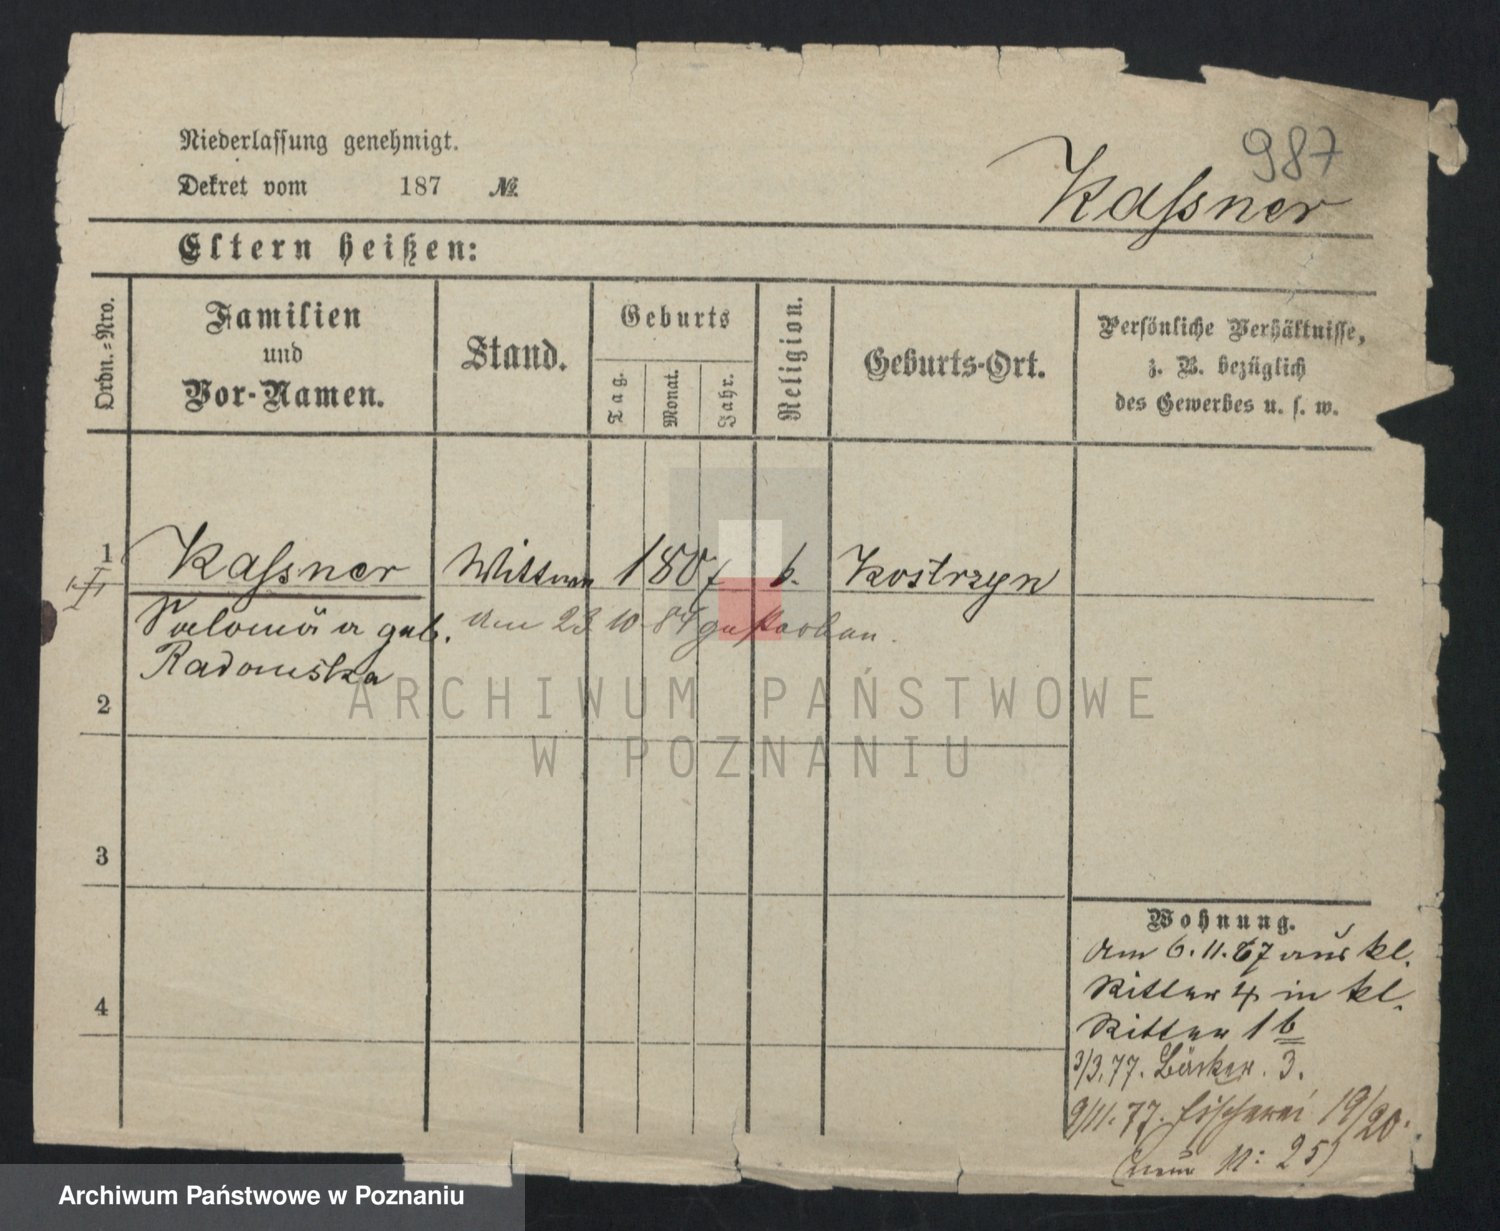 Niederlassung genehmigt.
Dekret vom 187 №
987
Kassner
Eltern heißen:
Ordn.-Nro.
Familien
und
Vor-Namen.
Stand.
Geburts
Tag.
Monat.
Jahr.
Religion.
Geburts-Ort.
Persönliche Verhältnisse,
z. B. bezüglich
des Gewerbes u. s. w.
1
Kassner Wittwe 1807 k. Kostrzyn
Salomäa geb. am 23 10 84 gestorben.
Radomska
2
3
4
Wohnung.
am 6.11.67 aus kl.
Ritter 4 in kl.
Ritter 1b
3/3.77. Bäcker. 3.
9/11.77. Fischerei 19/20.
(neue N: 25)
ARCHIWUM PAŃSTWOWE
W POZNANIU
Archiwum Państwowe w Poznaniu